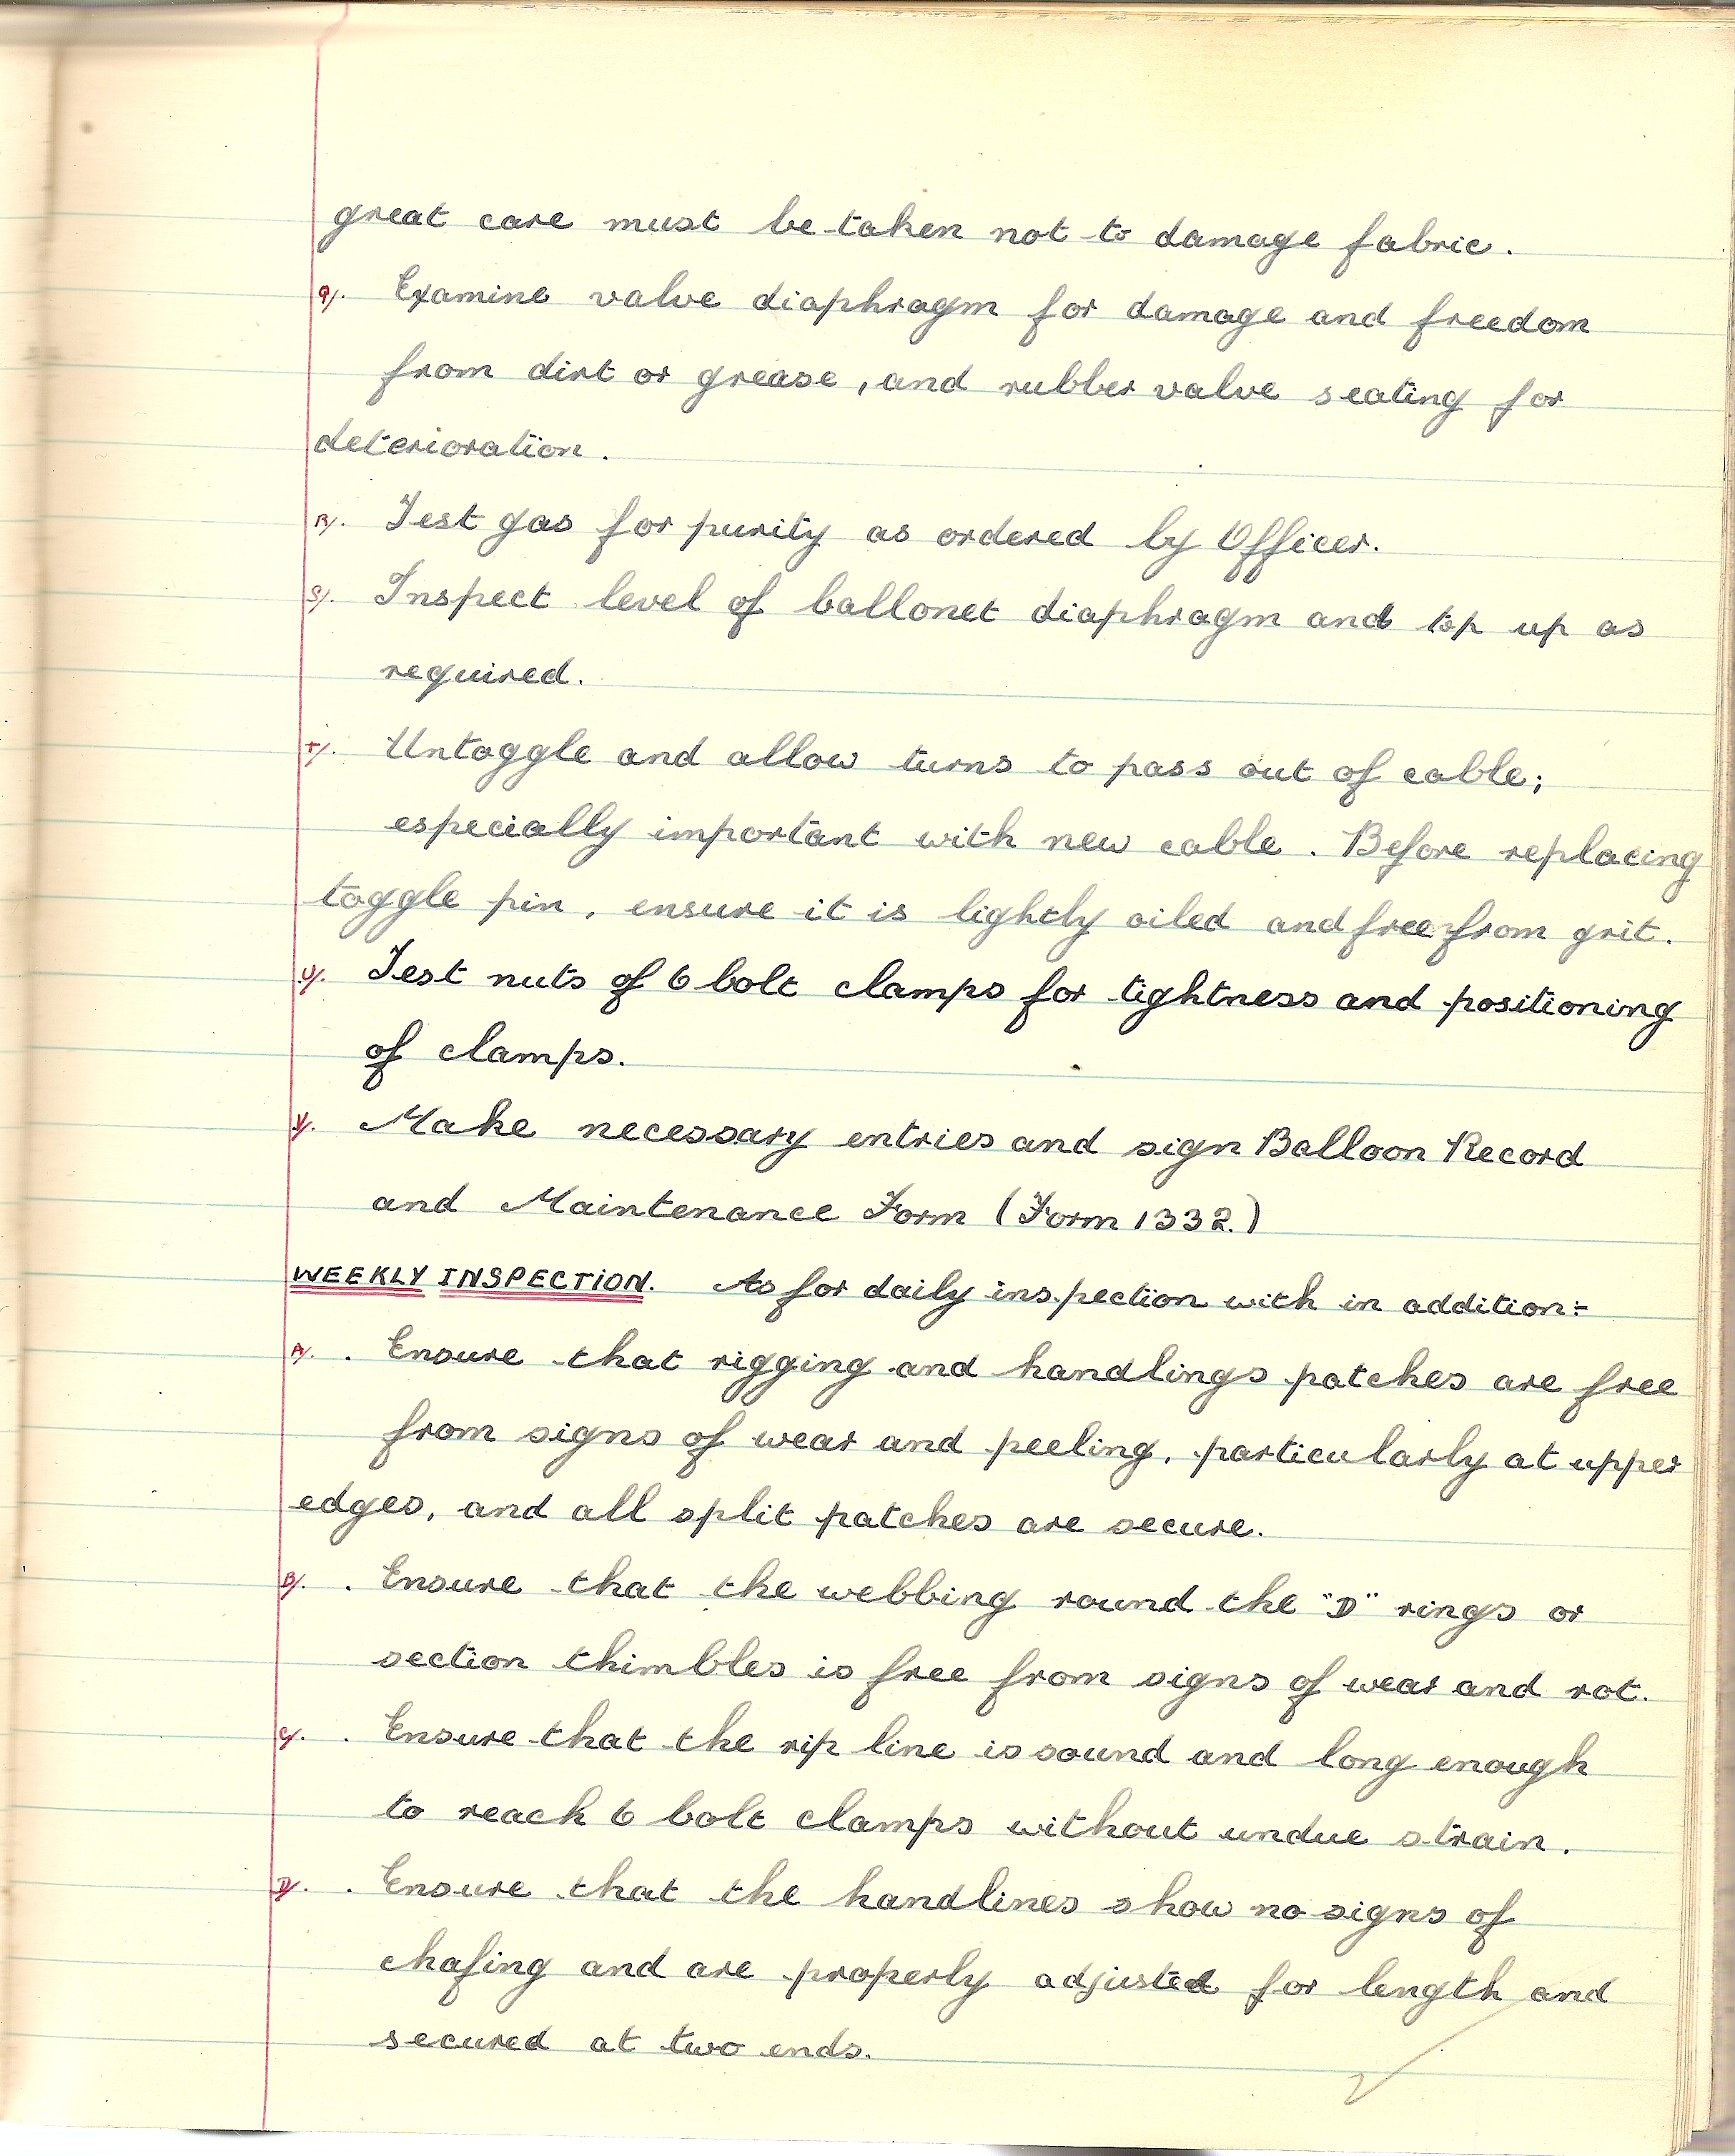 great care must be taken not to damage fabric.
Q/. Examine valve diaphragm for damage and freedom
from dirt or grease, and rubber valve seating for
deterioration.
R/. Test gas for purity as ordered by Officer.
S/. Inspect level of ballonet diaphragm and top up as
required.
T/. Untoggle and allow turns to pass out of cable;
especially important with new cable. Before replacing
toggle pin, ensure it is lightly oiled and free from grit.
U/. Test nuts of 6 bolt clamps for tightness and positioning
of clamps.
V/. Make necessary entries and sign Balloon Record
and Maintenance Form (Form 1332.)
WEEKLY INSPECTION. As for daily inspection with in addition:-
A/. . Ensure that rigging and handlings patches are free
from signs of wear and peeling, particularly at upper
edges, and all split patches are secure.
B/. . Ensure that the webbing round the "D" rings or
section thimbles is free from signs of wear and rot.
C/. . Ensure that the rip line is sound and long enough
to reach 6 bolt clamps without undue strain.
D/. . Ensure that the handlines show no signs of
chafing and are properly adjusted for length and
secured at two ends.